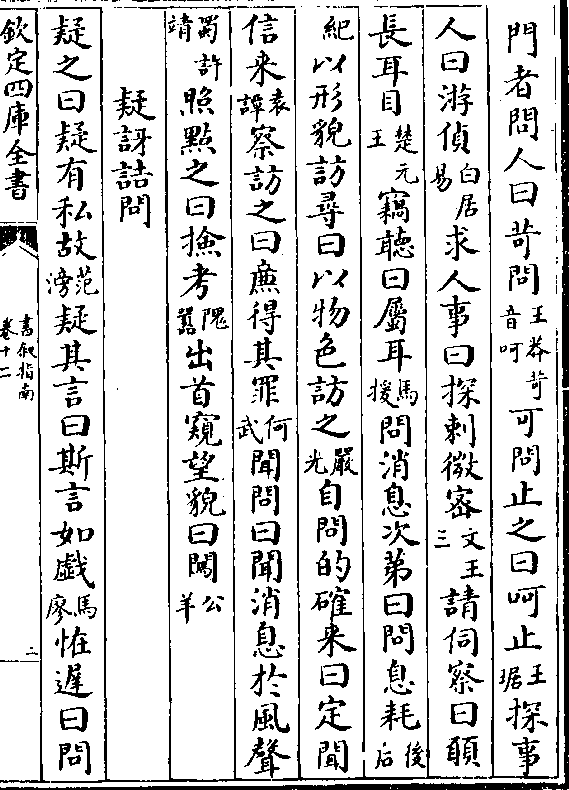 門者問人曰苛問王莽苛音呵可問止之曰呵止王琚探事
人曰游偵白居易求人事曰探刺微密文王三請伺察曰頤
長耳目楚元王竊聽曰屬耳馬援問消息次第曰問息耗後后
紀以形貌訪尋曰以物色訪之嚴光自問的確来曰定聞
信来袁諱察訪之曰廉得其罪何武聞問曰聞消息於風聲
蜀許靖照點之曰撿考隗囂出首窺望貌曰闖公羊
疑訝詰問
疑之曰疑有私故范滂疑其言曰斯言如戯馬廖恠遲曰問
欽定四庫全書
書叙指南
卷十二
三